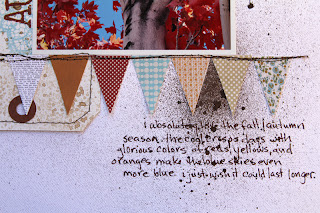 i absolutely love the fall/autumn
season. the cool, crisp days with
glorious colors of reds, yellows, and
oranges make the blue skies even
more blue. i just wish it could last longer.